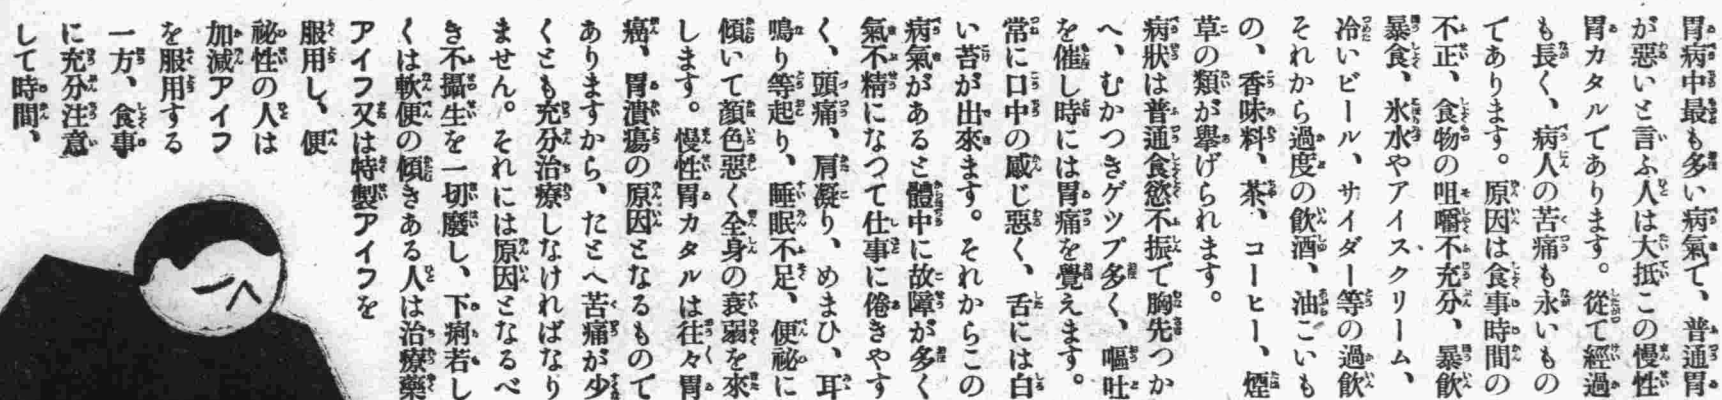 胃病中最も多い病氣で、普通胃
が惡いと言ふ人は大抵この慢性
胃カタルであります。從て經過
も長く、病人の苦痛も永いもの
であります。原因は食事時間の
不正、食物の咀嚼不充分、暴飮
暴食、氷水やアイスクリーム、
冷いビール、サイダー等の過飮
それから過度の飮酒、油こいも
の、香味料、茶、コーヒー、煙
草の類が擧げられます。
病狀は普通食慾不振で胸先つか
へ、むかつきゲップ多く、嘔吐
を催し時には胃痛を覺えます。
常に口中の感じ惡く、舌には白
い苔が出來ます。それからこの
病氣があると體中に故障が多く
氣不精になつて仕事に倦きやす
く、頭痛、肩凝り、めまひ、耳
鳴り等起り、睡眠不足、便祕に
傾いて顏色惡く全身の衰弱を來
します。慢性胃カタルは往々胃
癌、胃潰瘍の原因となるもので
ありますから、たとへ苦痛が少
くとも充分治療しなければなり
ません。それには原因となるべ
き不攝生を一切廢し、下痢若し
くは軟便の傾きある人は治療藥
アイフ又は特製アイフを
服用し、便
祕性の人は
加減アイフ
を服用する
一方、食事
に充分注意
して時間、